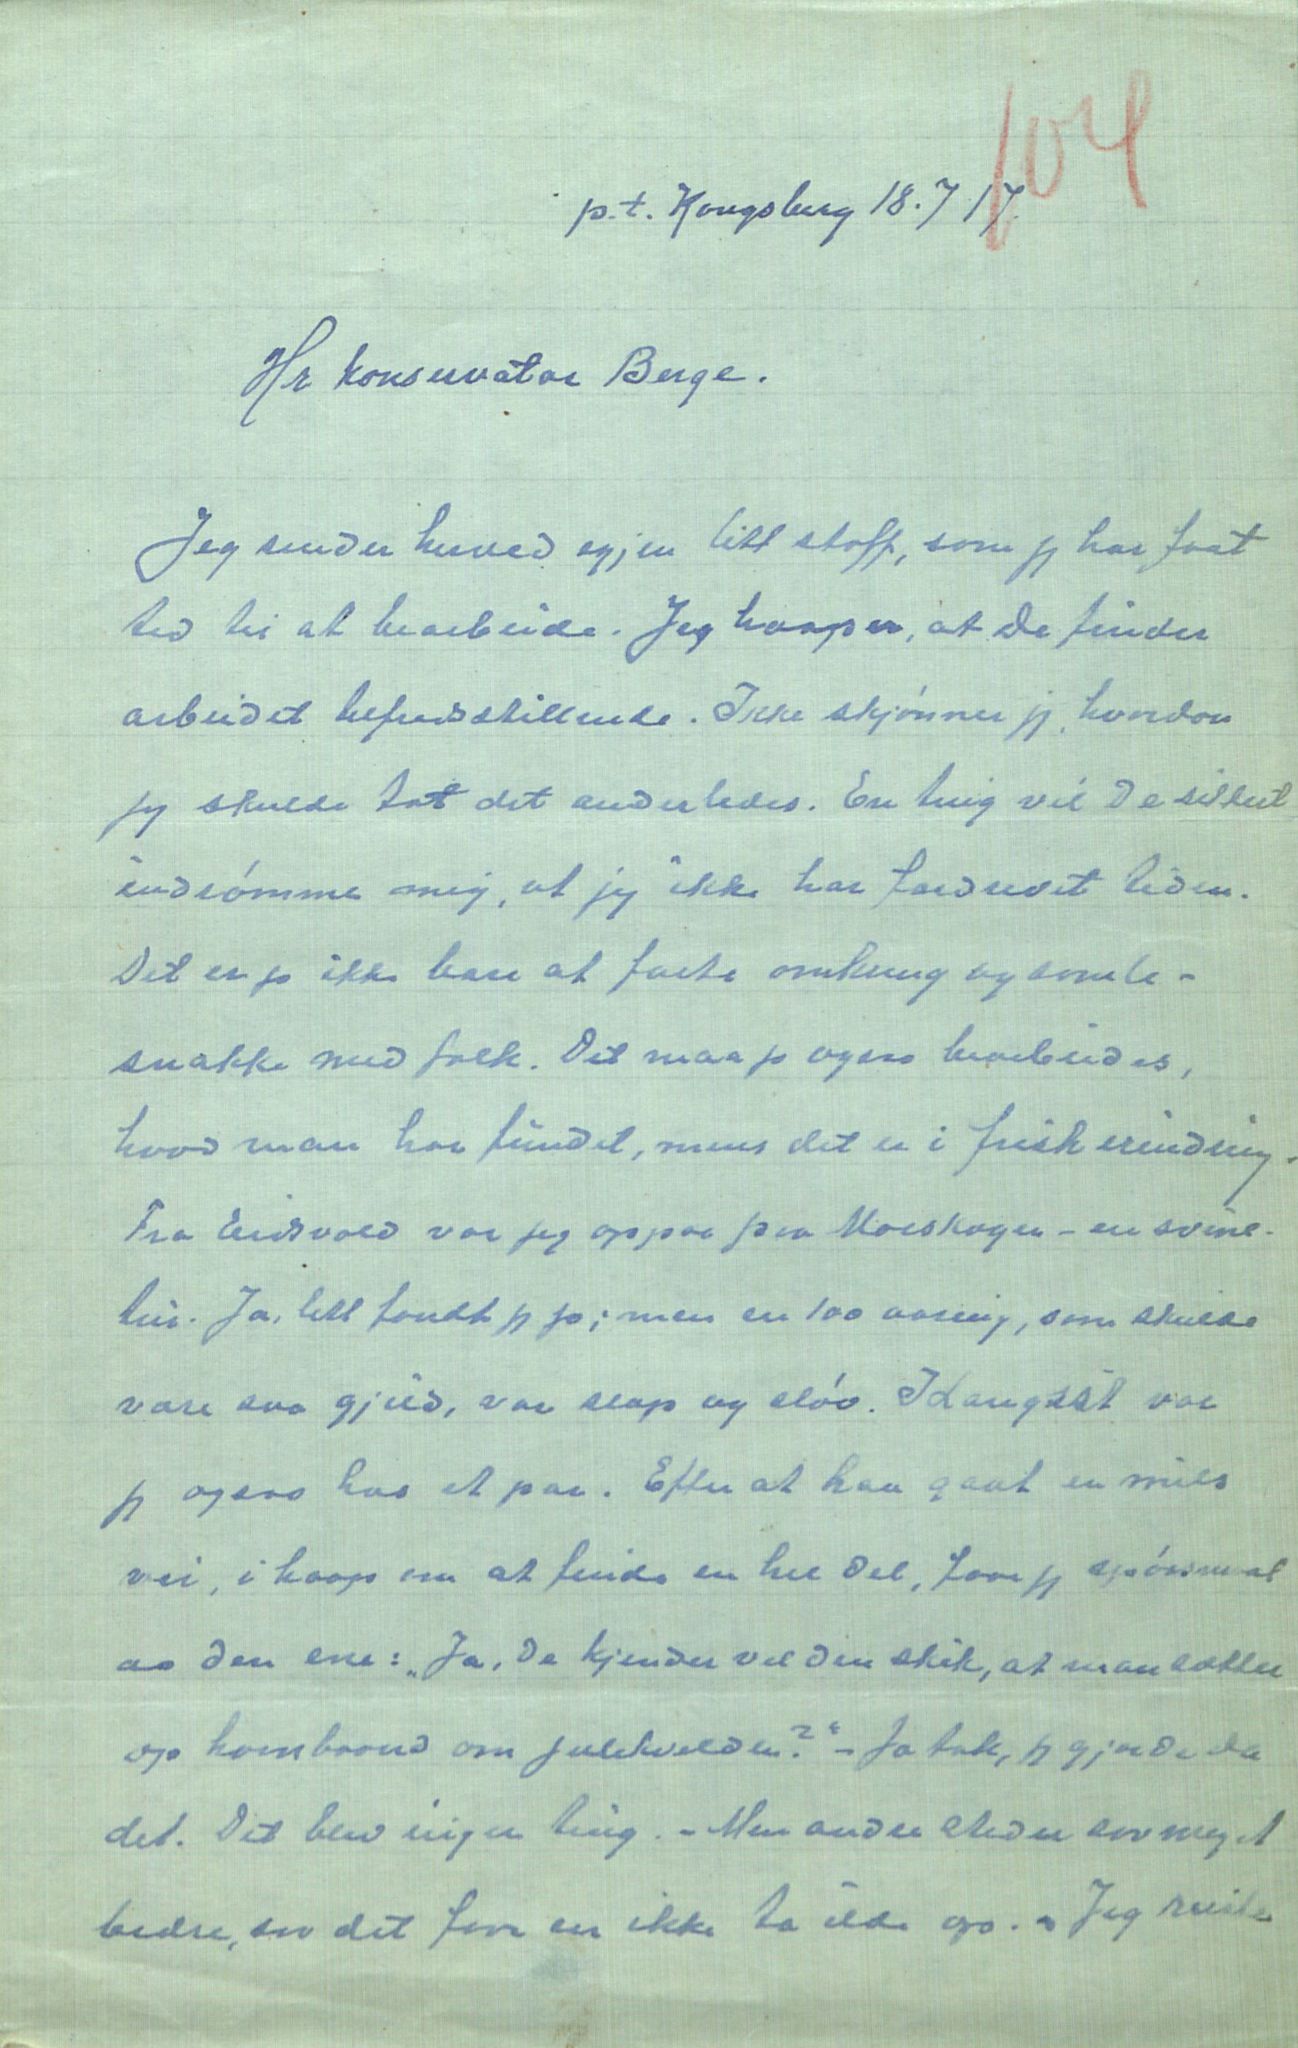 104
p.t. Kongsberg 18.7.17.
Hr konservator Berge.
Jeg sender herved igjen litt stoff, som jeg har faat
tid til at bearbeide. Jeg haaper, at De finder
arbeidet tilfredsstillende. Ikke skjønner jeg, hvordan
jeg skulde tat det anderledes. En ting vil De sikkert
indrømme mig, at jeg ikke har fordrevet tiden.
Det er jo ikke bare at farte omkring og somle-
snakke med folk. Det maa jo ogsaa bearbeides,
hvad man har fundet, mens det er i frisk erindring.
Fra Eidsvold var jeg oppaa paa Morskogen - en svine-
tur. Ja, litt fandt jeg jo; men en 100 aaring, som skulde
være saa gjild, var slap og sløv. I Langset var
jeg ogsaa hos et par. Efter at ha gaat en mils
vei, i haap om at finde en hel del, faar jeg spørsmaal
av den ene: "Ja, De kjender vel den skik, at man sætter
op kornbaand om julekvelden?" - Ja tak, jeg gjorde da
det. Det blev ingen ting. - Men andre steder saa meget
bedre, saa det faar en ikke ta ilde op. - Jeg reiste